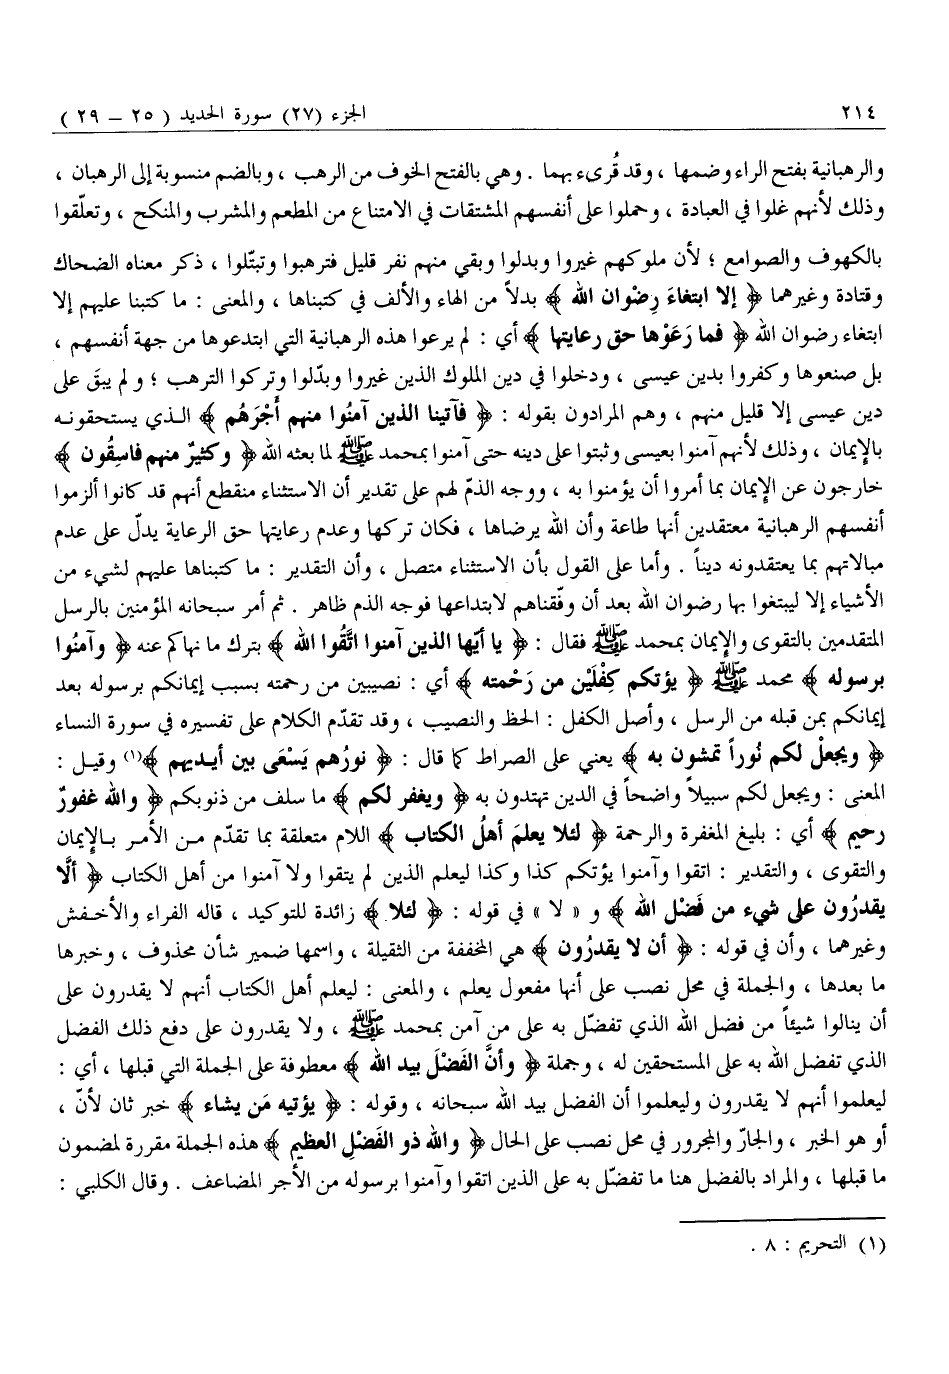 ٢١٤ الجزء (٢٧) سورة الحديد ( ٢٥ – ٢٩ )
والرهبانية بفتح الراء وضمها ، وقد قُرىء بهما . وهي بالفتح الخوف من الرهب ، وبالضم منسوبة إلى الرهبان ،
وذلك لأنهم غلوا في العبادة ، وحملوا على أنفسهم المشتقات في الامتناع من المطعم والمشرب والمنكح ، وتعلّقوا
بالكهوف والصوامع ؛ لأن ملوكهم غيروا وبدلوا وبقي منهم نفر قليل فترهبوا وتبتّلوا ، ذكر معناه الضحاك
وقتادة وغيرهما ﴿ إلا ابتغاءَ رِضْوان الله ﴾ بدلاً من الهاء والألف في كتبناها ، والمعنى : ما كتبنا عليهم إلا
ابتغاء رضوان الله ﴿ فما رَعَوْها حق رعايتها ﴾ أي : لم يرعوا هذه الرهبانية التي ابتدعوها من جهة أنفسهم ،
بل صنعوها وكفروا بدين عيسى ، ودخلوا في دين الملوك الذين غيروا وبدّلوا وتركوا الترهب ؛ ولم يبقَ على
دين عيسى إلا قليل منهم ، وهم المرادون بقوله : ﴿ فآتينا الذين آمنُوا منهم أَجْرَهُم ﴾ الذي يستحقونه
بالإيمان ، وذلك لأنهم آمنوا بعيسى وثبتوا على دينه حتى آمنوا بمحمد ﷺ لما بعثه الله ﴿ وكثيرٌ منهم فاسِقُون ﴾
خارجون عن الإيمان بما أمروا أن يؤمنوا به ، ووجه الذمّ لهم على تقدير أن الاستثناء منقطع أنهم قد كانوا ألزموا
أنفسهم الرهبانية معتقدين أنها طاعة وأن الله يرضاها ، فكان تركها وعدم رعايتها حق الرعاية يدلّ على عدم
مبالاتهم بما يعتقدونه ديناً . وأما على القول بأن الاستثناء متصل ، وأن التقدير : ما كتبناها عليهم لشيء من
الأشياء إلا ليبتغوا بها رضوان الله بعد أن وفّقناهم لابتداعها فوجه الذم ظاهر . ثم أمر سبحانه المؤمنين بالرسل
المتقدمين بالتقوى والإيمان بمحمد ﷺ فقال : ﴿ يا أيّها الذين آمنوا اتَّقُوا الله ﴾ بترك ما نهاكم عنه ﴿ وآمنُوا
برسوله ﴾ محمد ﷺ ﴿ يؤتكم كِفْلَيْن من رَحْمته ﴾ أي : نصيبين من رحمته بسبب إيمانكم برسوله بعد
إيمانكم بمن قبله من الرسل ، وأصل الكفل : الحظ والنصيب ، وقد تقدّم الكلام على تفسيره في سورة النساء
﴿ ويجعلْ لكم نُوراً تمشون به ﴾ يعني على الصراط كما قال : ﴿ نورُهم يَسْعَى بين أيديهم ﴾(١) وقيل :
المعنى : ويجعل لكم سبيلاً واضحاً في الدين تهتدون به ﴿ ويغفر لكم ﴾ ما سلف من ذنوبكم ﴿ والله غفورٌ
رحيم ﴾ أي : بليغ المغفرة والرحمة ﴿ لئلا يعلمَ أهلُ الكتاب ﴾ اللام متعلقة بما تقدّم من الأمر بالإيمان
والتقوى ، والتقدير : اتقوا وآمنوا يؤتكم كذا وكذا ليعلم الذين لم يتقوا ولا آمنوا من أهل الكتاب ﴿ ألَّا
يقدرُون على شيء من فَضْل الله ﴾ و « لا » في قوله : ﴿ لئلا ﴾ زائدة للتوكيد ، قاله الفراء والأخفش
وغيرهما ، وأن في قوله : ﴿ أن لا يقدرُون ﴾ هي المخففة من الثقيلة ، واسمها ضمير شأن محذوف ، وخبرها
ما بعدها ، والجملة في محل نصب على أنها مفعول يعلم ، والمعنى : ليعلم أهل الكتاب أنهم لا يقدرون على
أن ينالوا شيئاً من فضل الله الذي تفضّل به على من آمن بمحمد ﷺ ، ولا يقدرون على دفع ذلك الفضل
الذي تفضل الله به على المستحقين له ، وجملة ﴿ وأنَّ الفَضْلَ بيد الله ﴾ معطوفة على الجملة التي قبلها ، أي :
ليعلموا أنهم لا يقدرون وليعلموا أن الفضل بيد الله سبحانه ، وقوله : ﴿ يؤتيه مَن يشاء ﴾ خبر ثان لأنّ ،
أو هو الخبر ، والجارّ والمجرور في محل نصب على الحال ﴿ والله ذو الفَضْلِ العظيم ﴾ هذه الجملة مقررة لمضمون
ما قبلها ، والمراد بالفضل هنا ما تفضّل به على الذين اتقوا وآمنوا برسوله من الأجر المضاعف . وقال الكلبي :
(١) التحريم : ٨ .